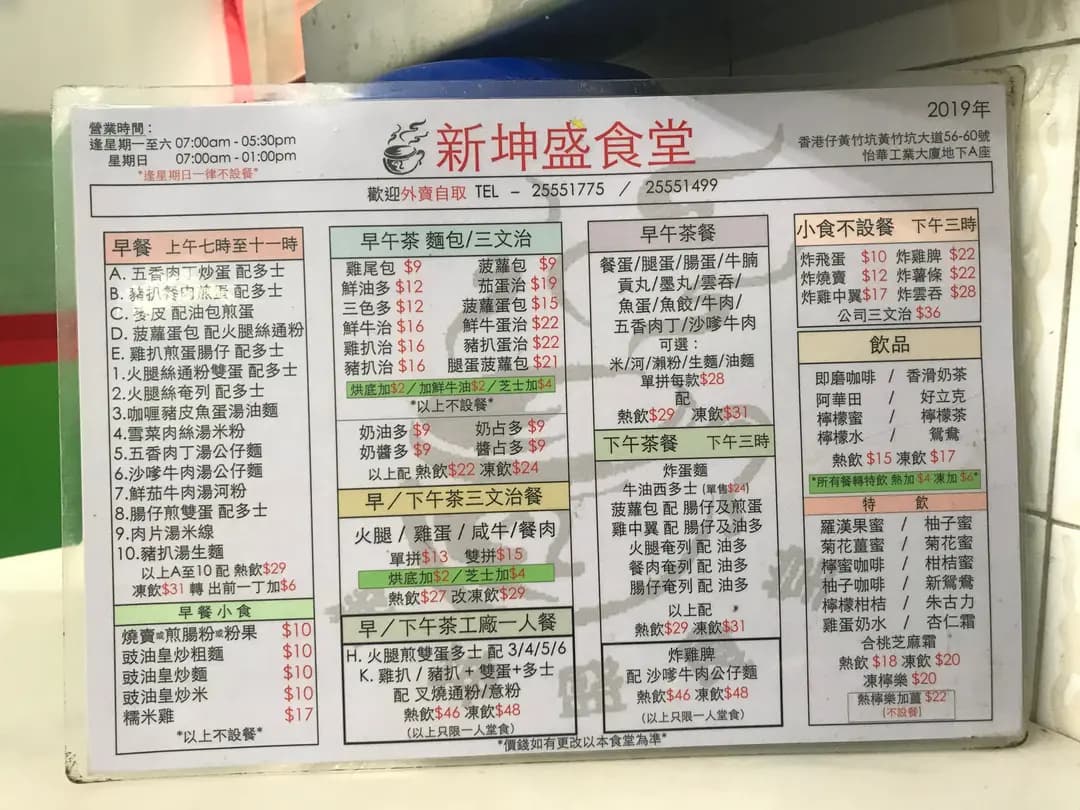 營業時間：
逢星期一至六 07:00am - 05:30pm
星期日 07:00am - 01:00pm
*逢星期日一律不設餐*
新坤盛食堂
2019年
香港仔黃竹坑黃竹坑大道56-60號
怡華工業大廈地下A座
歡迎外賣自取 TEL - 25551775 / 25551499
早餐 上午七時至十一時
A. 五香肉丁炒蛋 配多士
B. 豬扒餐肉煎蛋 配多士
C. 麥皮 配油包煎蛋
D. 菠蘿蛋包 配火腿絲通粉
E. 雞扒煎蛋腸仔 配多士
1.火腿絲通粉雙蛋 配多士
2.火腿絲奄列 配多士
3.咖喱豬皮魚蛋湯油麵
4.雪菜肉絲湯米粉
5.五香肉丁湯公仔麵
6.沙嗲牛肉湯公仔麵
7.鮮茄牛肉湯河粉
8.腸仔煎雙蛋 配多士
9.肉片湯米線
10.豬扒湯生麵
以上A至10 配 熱飲$29
凍飲$31 轉 出前一丁加$6
早餐小食
燒賣或煎腸粉或粉果 $10
豉油皇炒粗麵 $10
豉油皇炒麵 $10
豉油皇炒米 $10
糯米雞 $17
*以上不設餐*
早午茶 麵包/三文治
雞尾包 $9 菠蘿包 $9
鮮油多 $12 茄蛋治 $19
三色多 $12 菠蘿蛋包 $15
鮮牛治 $16 鮮牛蛋治 $22
雞扒治 $16 豬扒蛋治 $22
豬扒治 $16 腿蛋菠蘿包 $21
烘底加$2／加鮮牛油$2／芝士加$4
*以上不設餐*
奶油多 $9 奶占多 $9
奶醬多 $9 醬占多 $9
以上配 熱飲$22 凍飲$24
早／下午茶三文治餐
火腿 / 雞蛋 / 咸牛/餐肉
單拼$13 雙拼$15
烘底加$2／芝士加$4
熱飲$27 改凍飲$29
早／下午茶工廠一人餐
H. 火腿煎雙蛋多士 配 3/4/5/6
K. 雞扒 / 豬扒 + 雙蛋+多士
配 叉燒通粉/意粉
熱飲$46 凍飲$48
(以上只限一人堂食)
早午茶餐
餐蛋/腿蛋/腸蛋/牛腩
貢丸/墨丸/雲吞/
魚蛋/魚餃/牛肉/
五香肉丁/沙嗲牛肉
可選：
米/河/瀨粉/生麵/油麵
單拼每款$28
配
熱飲$29 凍飲$31
下午茶餐 下午三時
炸蛋麵
牛油西多士 (單售$24)
菠蘿包 配 腸仔及煎蛋
雞中翼 配 腸仔及油多
火腿奄列 配 油多
餐肉奄列 配 油多
腸仔奄列 配 油多
以上配
熱飲$29 凍飲$31
炸雞脾
配 沙嗲牛肉公仔麵
熱飲$46 凍飲$48
(以上只限一人堂食)
小食不設餐 下午三時
炸飛蛋 $10 炸雞脾 $22
炸燒賣 $12 炸薯條 $22
炸雞中翼$17 炸雲吞 $28
公司三文治 $36
飲品
即磨咖啡 / 香滑奶茶
阿華田 / 好立克
檸檬蜜 / 檸檬茶
檸檬水 / 鴛鴦
熱飲 $15 凍飲 $17
*所有餐轉特飲 熱加 $4 凍加 $6*
特 飲
羅漢果蜜 / 柚子蜜
菊花薑蜜 / 菊花蜜
檸蜜咖啡 / 柑桔蜜
柚子咖啡 / 新鴛鴦
檸檬柑桔 / 朱古力
雞蛋奶水 / 杏仁霜
合桃芝麻霜
熱飲 $18 凍飲 $20
凍檸樂 $20
熱檸樂加薑 $22
(不設餐)
*價錢如有更改以本食堂為準*